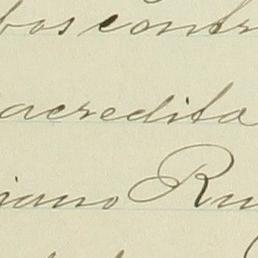 bos contr
acredita
iano Ru